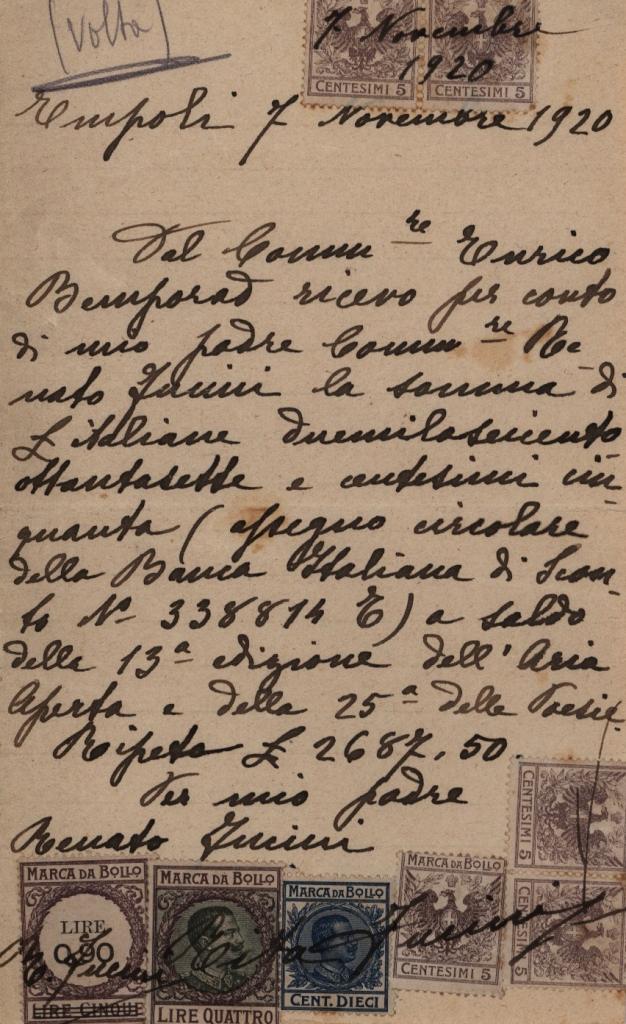 (volta)
7 Novembre
1920
CENTESIMI 5 CENTESIMI 5
Empoli 7 Novembre 1920
Dal Comm re Enrico
Bemporad ricevo per conto
di mio padre Comm re Re-
nato Fucini la somma di
£ italiane duemilaseicento
ottantasette e centesimi cin-
quanta (assegno circolare
della Banca Italiana di Scon-
to No 338814 E) a saldo
della 13a edizione dell'Aria
Aperta e della 25a delle Poesie
Ripeto £ 2687.50
Per mio padre
Renato Fucini
CENTESIMI 5
MARCA DA BOLLO MARCA DA BOLLO MARCA DA BOLLO MARCA DA BOLLO
LIRE
0,90
LIRE CINQUE
LIRE QUATTRO
CENT. DIECI
CENTESIMI 5
CENTESIMI 5
Rita Fucini